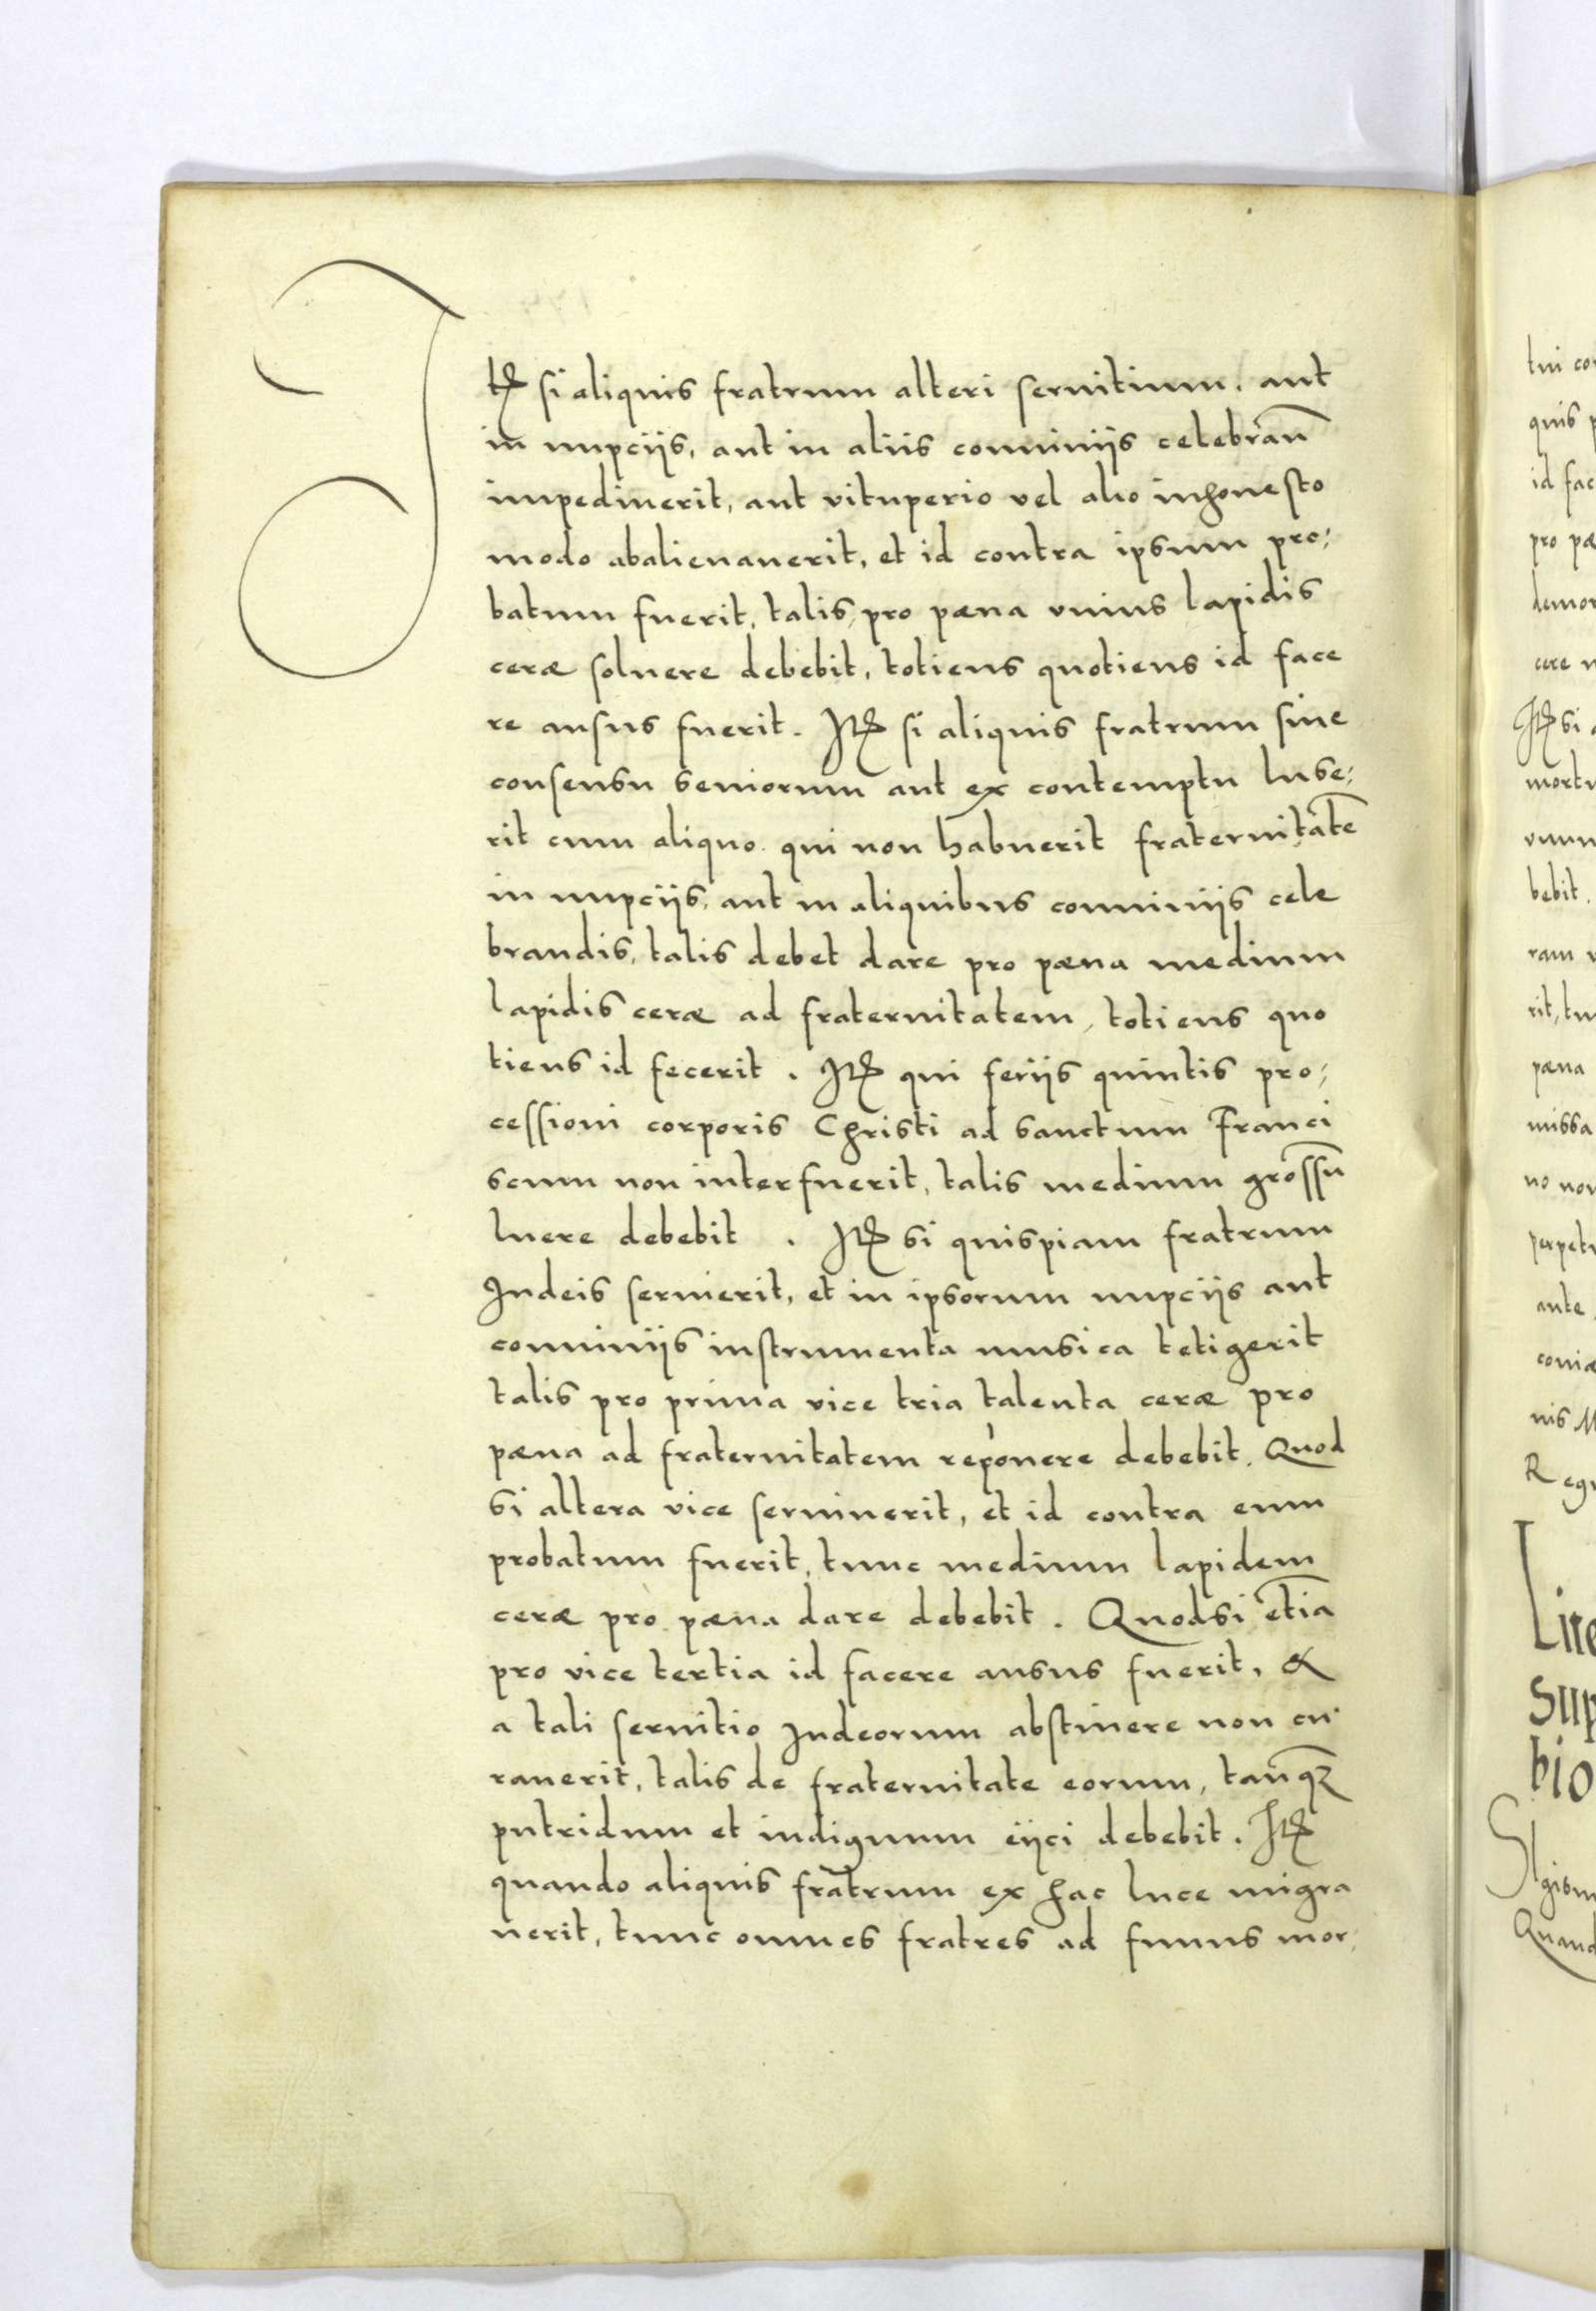 Itꝝ si aliquis fratrum alteri seruitium, aut
in nupciis, aut in aliis conuiuiis celebran̄
impediuerit, aut vituperio vel alio inhonesto
modo abalienauerit, et id contra ipsum pro:
batum fuerit, talis pro pæna vnius lapidis
ceræ soluere debebit, totiens quotiens id face
re ausus fuerit. Itꝝ si aliquis fratrum sine
consensu seniorum aut ex contemptu luse:
rit cum aliquo qui non habuerit fraternitatē
in nupciis, aut in aliquibus conuiuiis cele
brandis, talis debet dare pro pæna medium
lapidis ceræ ad fraternitatem, totiens quo
tiens id fecerit. Itꝝ qui feriis quintis pro:
cessioni corporis Christi ad sanctum Franci
scum non interfuerit, talis medium grossū
luere debebit. Itꝝ si quispiam fratrum
Iudeis seruierit, et in ipsorum nupciis aut
conuiuiis instrumenta musica tetigerit
talis pro prima vice tria talenta ceræ pro
pæna ad fraternitatem reponere debebit. Quod
si altera vice seruiuerit, et id contra eum
probatum fuerit, tunc medium lapidem
ceræ pro pæna dare debebit. Quodsi etiā
pro vice tertia id facere ausus fuerit, &
a tali seruitio Iudeorum abstinere non cu
rauerit, talis de fraternitate eorum, tanq̄ꝫ
putridum et indignum eijci debebit. Itꝝ
quando aliquis fratrum ex hac luce migra
uerit, tunc omnes fratres ad funus mor:
tui
quis
id fac
pro pæ
cere
Itꝝ si
bebit.
ram
rit, tu
pæna
missa
no non
perpetu
ante
nis
Regn
Lite
sup
bio
Sigism
Quand